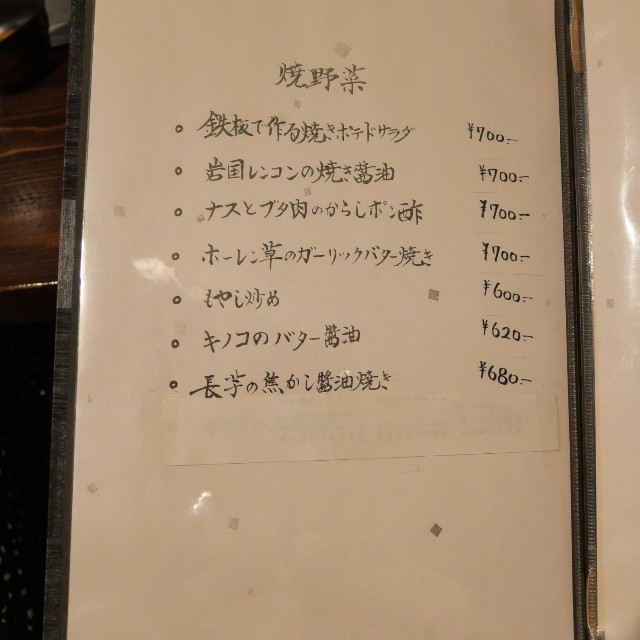 焼野菜
鉄板で作る焼きポテトサラダ ¥700.-
岩国レンコンの焼き醤油 ¥700.-
ナスとブタ肉のからしポン酢 ¥700.-
ホーレン草のガーリックバター焼き ¥700.-
もやし炒め ¥600.-
キノコのバター醤油 ¥620.-
長芋の焦がし醤油焼き ¥680.-